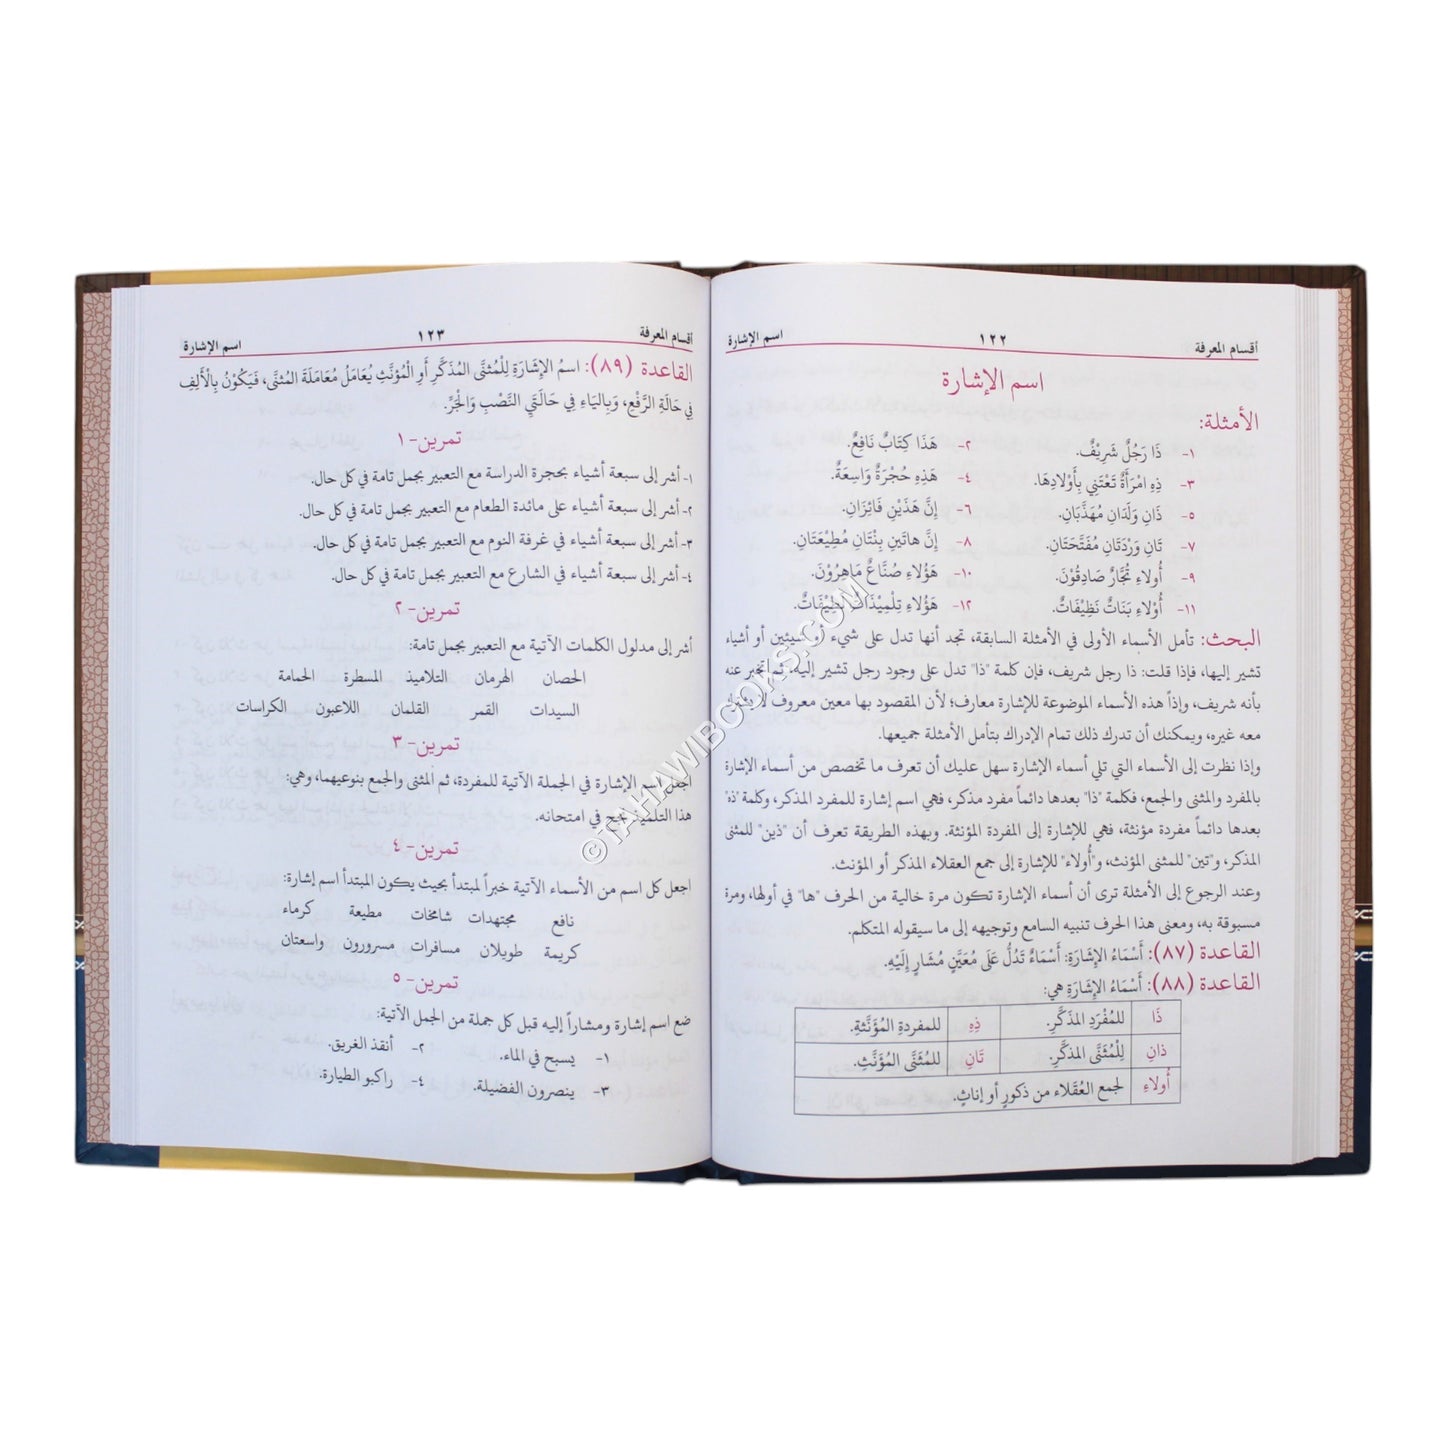 أقسام المعرفة ١٢٢ اسم الإشارة
اسم الإشارة
الأمثلة:
١- ذَا رَجُلٌ شَرِيْفٌ. ٢- هَذَا كِتَابٌ نَافِعٌ.
٣- ذِهِ امْرَأَةٌ تَعْتَنِي بِأَوْلادِهَا. ٤- هَذِهِ حُجْرَةٌ وَاسِعَةٌ.
٥- ذَانِ وَلَدَانِ مُهَذَّبَانِ. ٦- إِنَّ هَذَيْنِ فَائِزَانِ.
٧- تَانِ وَرْدَتَانِ مُفَتَّحَتَانِ. ٨- إِنَّ هاتَينِ بِنْتَانِ مُطِيْعَتَانِ.
٩- أُولاءِ تُجَّارٌ صَادِقُوْنَ. ١٠- هَؤُلاءِ صُنَّاعٌ مَاهِرُوْنَ.
١١- أُوْلاءِ بَنَاتٌ نَظِيْفَاتٌ. ١٢- هَؤُلاءِ تِلْمِيْذَاتٌ نَظِيْفَاتٌ.
البحث: تأمل الأسماء الأولى في الأمثلة السابقة، تجد أنها تدل على شيء أو شيئين أو أشياء
تشير إليها، فإذا قلت: ذا رجل شريف، فإن كلمة "ذا" تدل على وجود رجل تشير إليه، ثم تخبر عنه
بأنه شريف، وإذا هذه الأسماء الموضوعة للإشارة معارف؛ لأن المقصود بها معين معروف لا يشترك
معه غيره، ويمكنك أن تدرك ذلك تمام الإدراك بتأمل الأمثلة جميعها.
وإذا نظرت إلى الأسماء التي تلي أسماء الإشارة سهل عليك أن تعرف ما تخصص من أسماء الإشارة
بالمفرد والمثنى والجمع، فكلمة "ذا" بعدها دائماً مفرد مذكر، فهي اسم إشارة للمفرد المذكر، وكلمة "ذه"
بعدها دائماً مفردة مؤنثة، فهي للإشارة إلى المفردة المؤنثة. وبهذه الطريقة تعرف أن "ذين" للمثنى
المذكر، و"تين" للمثنى المؤنث، و"أُولاء" للإشارة إلى جمع العقلاء المذكر أو المؤنث.
وعند الرجوع إلى الأمثلة ترى أن أسماء الإشارة تكون مرة خالية من الحرف "ها" في أولها، ومرة
مسبوقة به، ومعنى هذا الحرف تنبيه السامع وتوجيهه إلى ما سيقوله المتكلم.
القاعدة (٨٧): أَسْمَاءُ الإِشَارَةِ: أَسْمَاءٌ تَدُلُّ عَلَى مُعَيَّنٍ مُشَارٍ إِلَيْهِ.
القاعدة (٨٨): أَسْمَاءُ الإِشَارَةِ هِي:
ذَا للمُفْرَدِ المذَكَّرِ. ذِهِ للمفردةِ المُؤَنَّثةِ.
ذانِ لِلْمُثَنَّى المذكَّرِ. تَانِ للمُثَنَّى المُؤَنَّثِ.
أُولاءِ لجمع العُقَلاء من ذكورٍ أو إناثٍ.
أقسام المعرفة ١٢٣ اسم الإشارة
القاعدة (٨٩): اسمُ الإِشَارَةِ لِلْمُثنَّى المُذَكَّرِ أَوِ الْمُؤنَّثِ يُعَامَلُ مُعَامَلَةَ المُثنَّى، فَيَكُوْنُ بِالْأَلِفِ
فِي حَالَةِ الرَّفْعِ، وَبِاليَاءِ فِي حَالَتَي النَّصْبِ وَالْجَرِّ.
تمرين- ١
١- أشر إلى سبعة أشياء بحجرة الدراسة مع التعبير بجمل تامة في كل حال.
٢- أشر إلى سبعة أشياء على مائدة الطعام مع التعبير بجمل تامة في كل حال.
٣- أشر إلى سبعة أشياء في غرفة النوم مع التعبير بجمل تامة في كل حال.
٤- أشر إلى سبعة أشياء في الشارع مع التعبير بجمل تامة في كل حال.
تمرين- ٢
أشر إلى مدلول الكلمات الآتية مع التعبير بجمل تامة:
الحصان الهرمان التلاميذ المسطرة الحمامة
السيدات القمر القلمان اللاعبون الكراسات
تمرين- ٣
اجعل اسم الإشارة في الجملة الآتية للمفردة، ثم المثنى والجمع بنوعيهما، وهي:
هذا التلميذ نجح في امتحانه.
تمرين- ٤
اجعل كل اسم من الأسماء الآتية خبراً لمبتدأ بحيث يكون المبتدأ اسم إشارة:
نافع مجتهدات شامخات مطيعة كرماء
كريمة طويلان مسافرات مسرورون واسعتان
تمرين- ٥
ضع اسم إشارة ومشاراً إليه قبل كل جملة من الجمل الآتية:
١- يسبح في الماء. ٢- أنقذ الغريق.
٣- ينصرون الفضيلة. ٤- راكبو الطيارة.
©TAHAWIBOOKS.COM